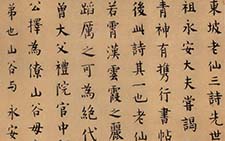 東坡老仙三詩先世
祖永安大夫嘗謁
之青神有攜行書帖
後此詩其一也老仙
若霄漢雲霞之麗
蹈厲之可為絕代
曾大父禮院官中
公擇為僚山谷母
弟也山谷与永安